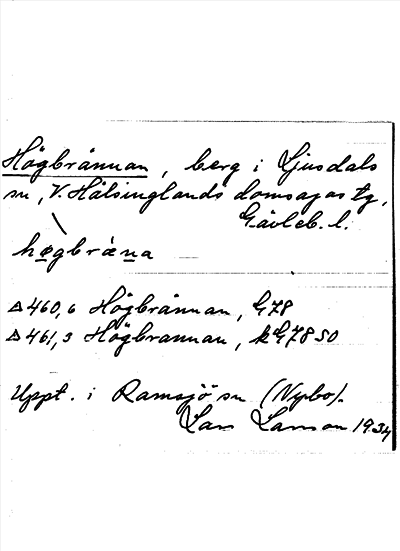 Högbrännan, berg i Ljusdals
sn, V. Hälsinglands domsagas tg,
Gävleb. l.
høgbræna
△460,6 Högbrännan, G78
△461,3 Högbrannan, kG78SO
Uppt. i Ramsjö sn (Nybo).
Lars Larsson 1934